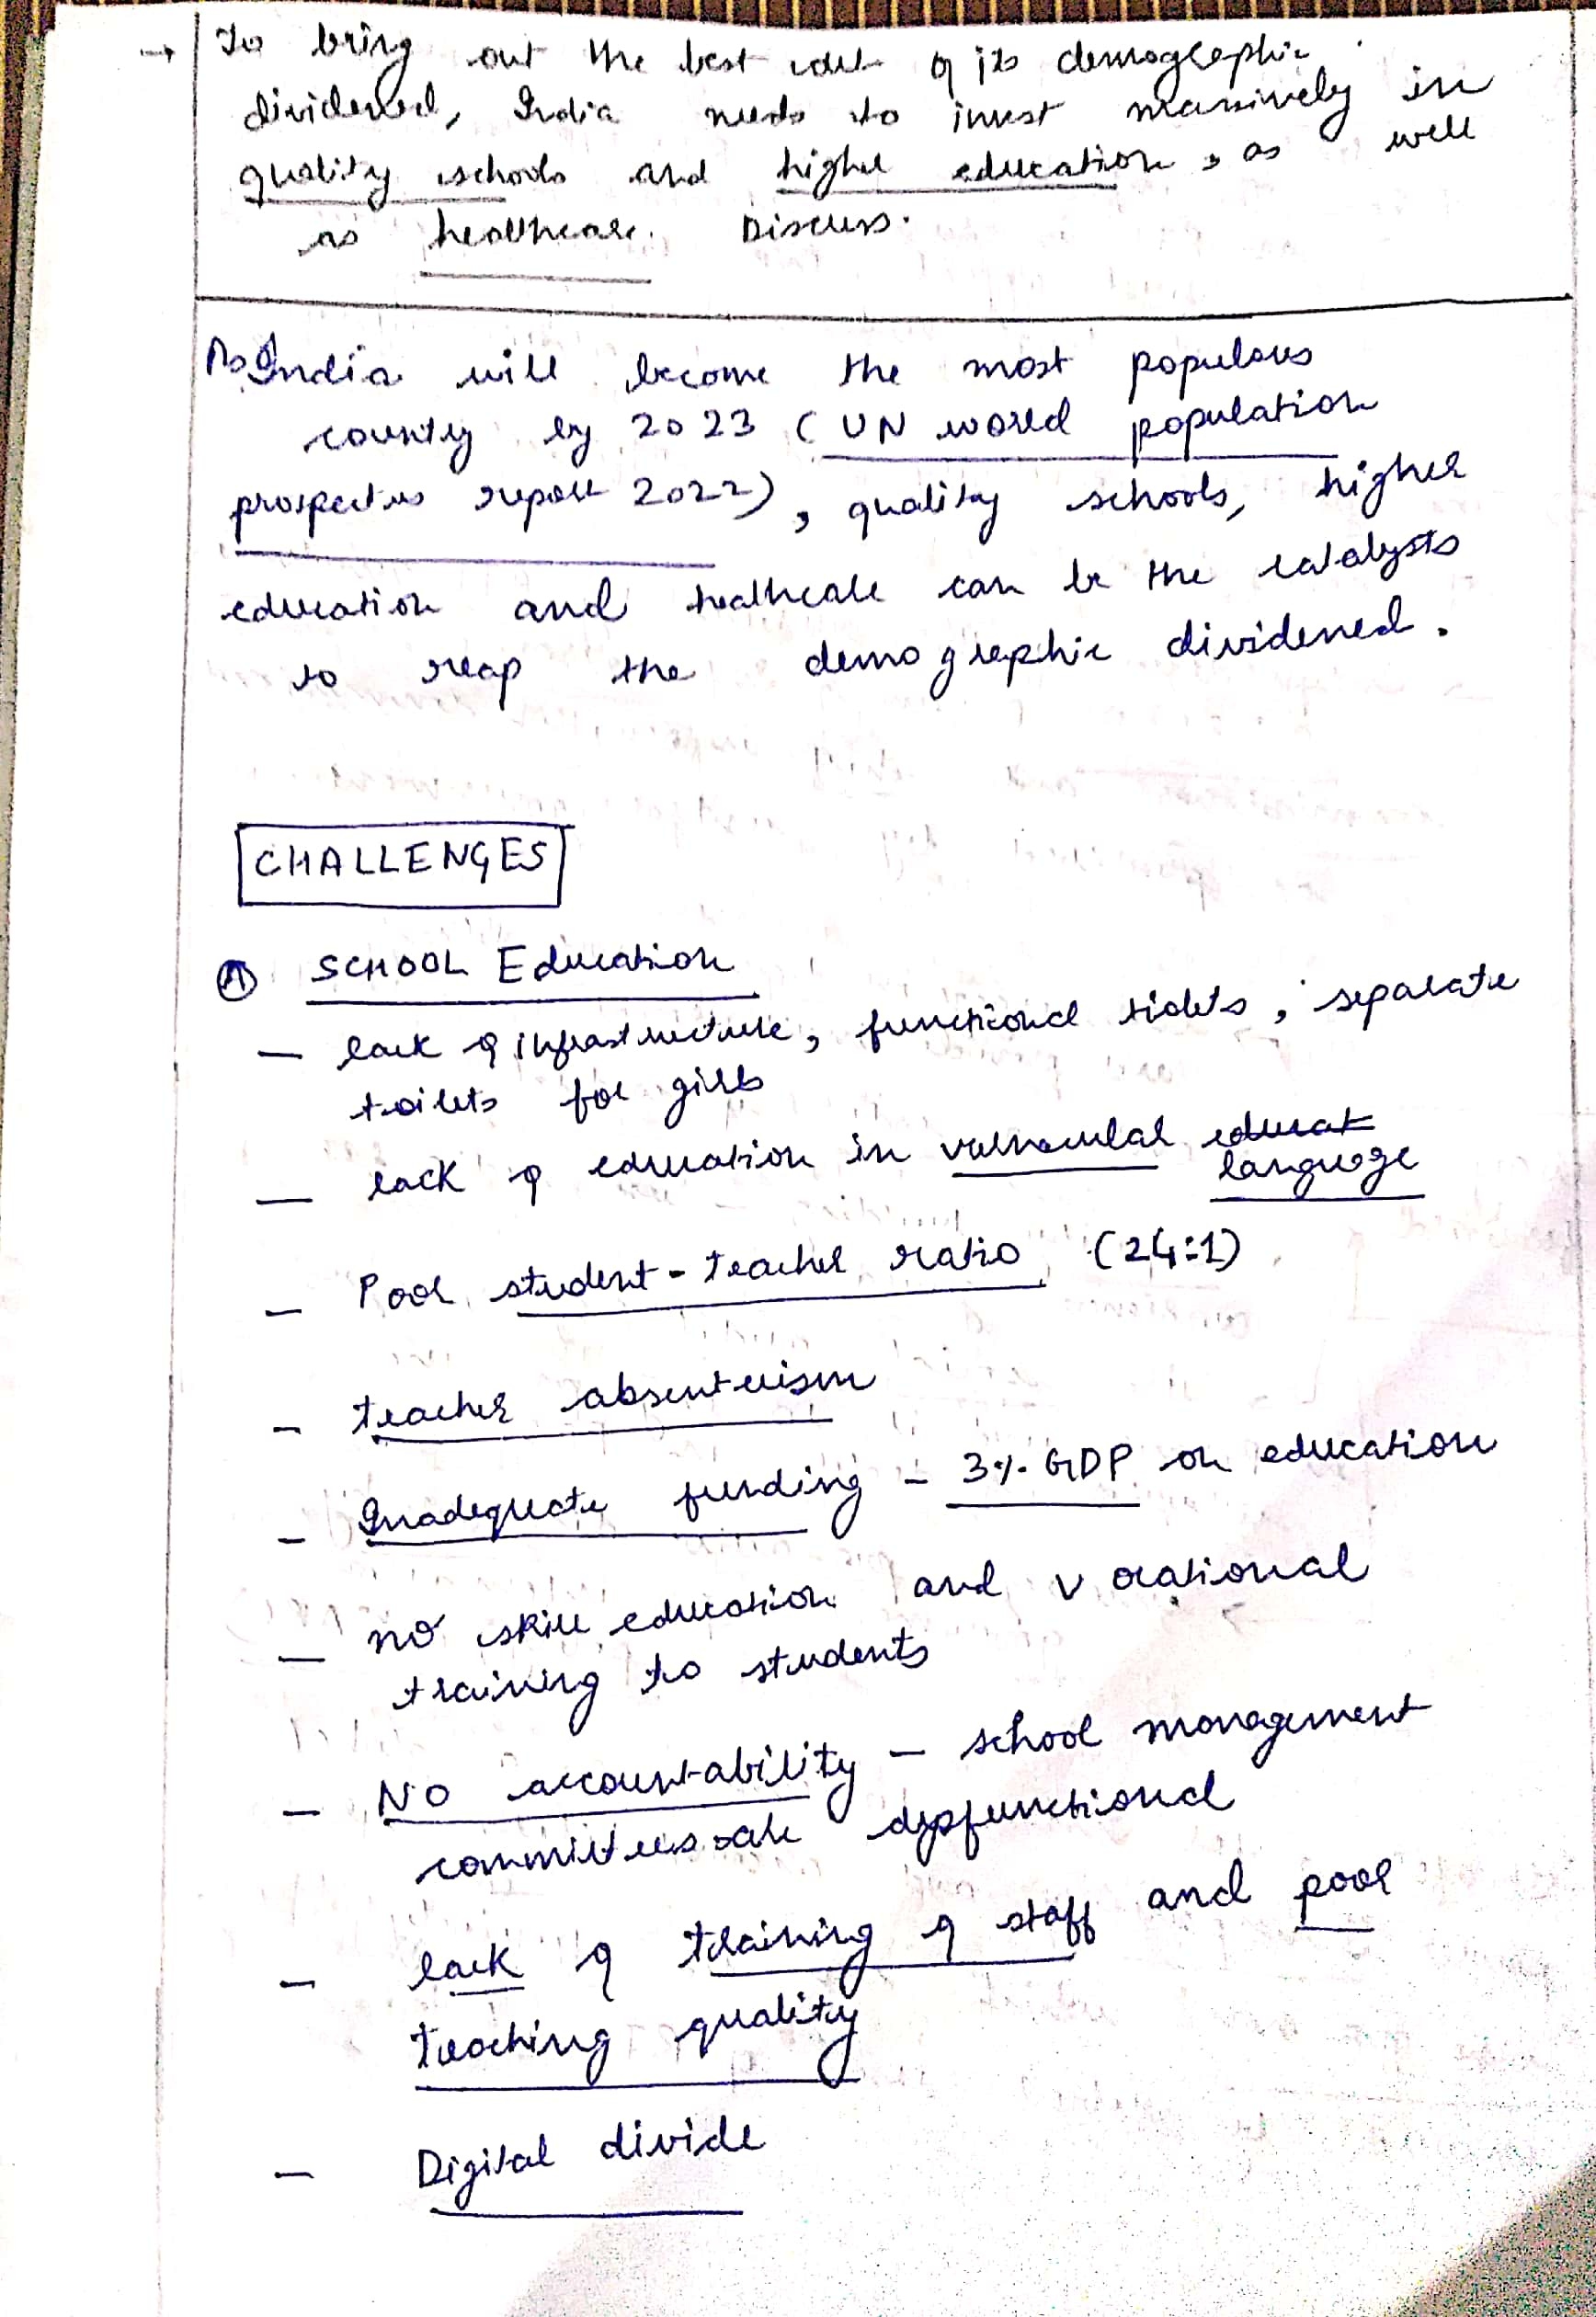 → To bring out the best out of its demographic
dividened, India needs to invest massively in
quality schools and higher education, as well
as healthcare. Discuss.
As India will become the most populous
country by 2023 (UN world population
prospectus report 2022), quality schools, higher
education and healthcare can be the catalysts
to reap the demographic dividened.
CHALLENGES
A SCHOOL Education
— lack of infrastructure, functional toilets, separate
toilets for girls
— lack of education in vernacular educat
language
— Poor student - teacher ratio (24:1)
— teacher absenteeism
— Inadequate funding — 3% GDP on education
— no skill education and vocational
training to students
— No accountability — school management
committees are dysfunctional
— lack of training of staff and poor
teaching quality
— Digital divide